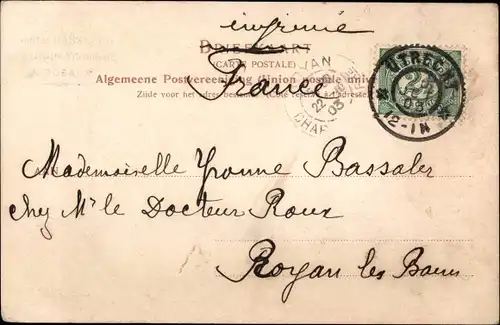 imprimé
BRIEFKAART
(CARTE POSTALE)
Algemeene Postvereeniging (Union postale univ
France
Zijde voor het adres bestemd. (Côté réservé à l'adresse)
UTRECHT
12-1N
22
03
CHAR
Mademoiselle Yvonne Bassaler
Chez Mr le Docteur Roux
Royan les Bains